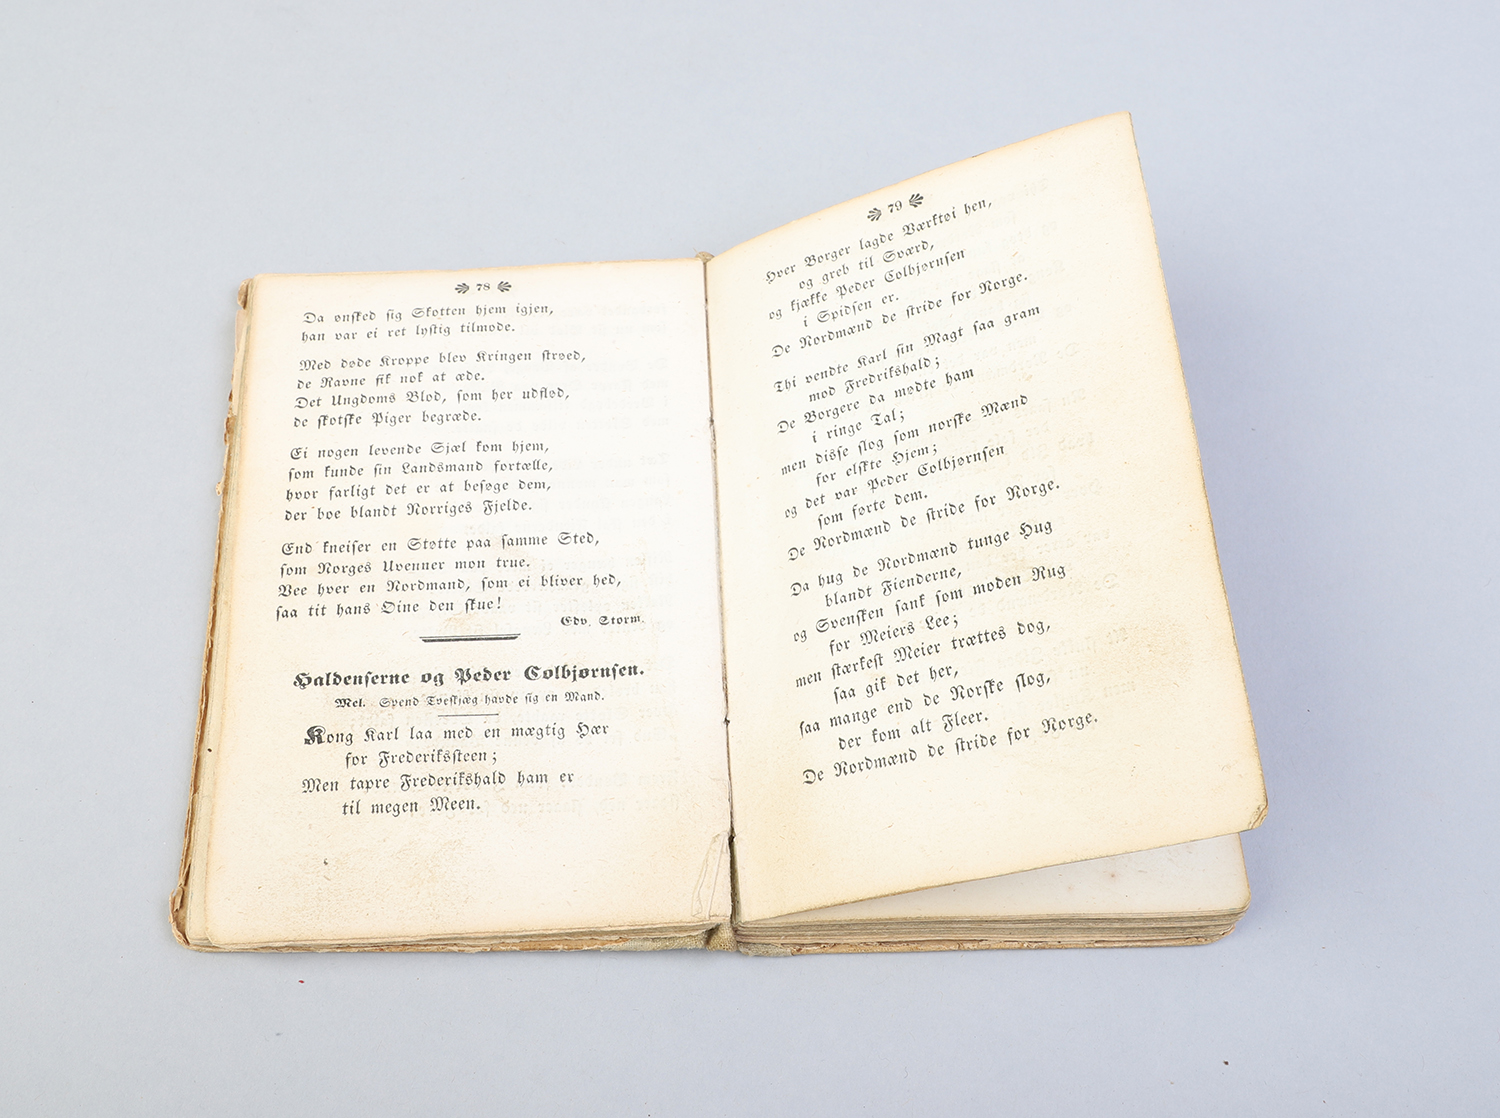 78
Da ønsked sig Skotten hjem igjen,
han var ei ret lystig tilmode.
Med døde Kroppe blev Kringen strøed,
de Ravne fik nok at æde.
Det Ungdoms Blod, som her udflød,
de skotske Piger begræde.
Ei nogen levende Sjæl kom hjem,
som kunde sin Landsmand fortælle,
hvor farligt det er at besøge dem,
der boe blandt Norriges Fjelde.
End kneiser en Støtte paa samme Sted,
som Norges Uvenner mon true.
Vee hver en Nordmand, som ei bliver hed,
saa tit hans Øine den skue!
Edv. Storm.
Haldenserne og Peder Colbjørnsen.
Mel. Svend Tveskjæg havde sig en Mand.
Kong Karl laa med en mægtig Hær
for Frederikssteen;
Men tapre Frederikshald ham er
til megen Meen.
79
Hver Borger lagde Værktøi hen,
og greb til Sværd,
og kjække Peder Colbjørnsen
i Spidsen er.
De Nordmænd de stride for Norge.
Thi vendte Karl sin Magt saa gram
mod Fredrikshald;
De Borgere da mødte ham
i ringe Tal;
men disse slog som norske Mænd
for elskte Hjem;
og det var Peder Colbjørnsen
som førte dem.
De Nordmænd de stride for Norge.
Da hug de Nordmænd tunge Hug
blandt Fienderne,
og Svensken sank som moden Rug
for Meiers Lee;
men stærkest Meier trættes dog,
saa gik det her,
saa mange end de Norske slog,
der kom alt Fleer.
De Nordmænd de stride for Norge.